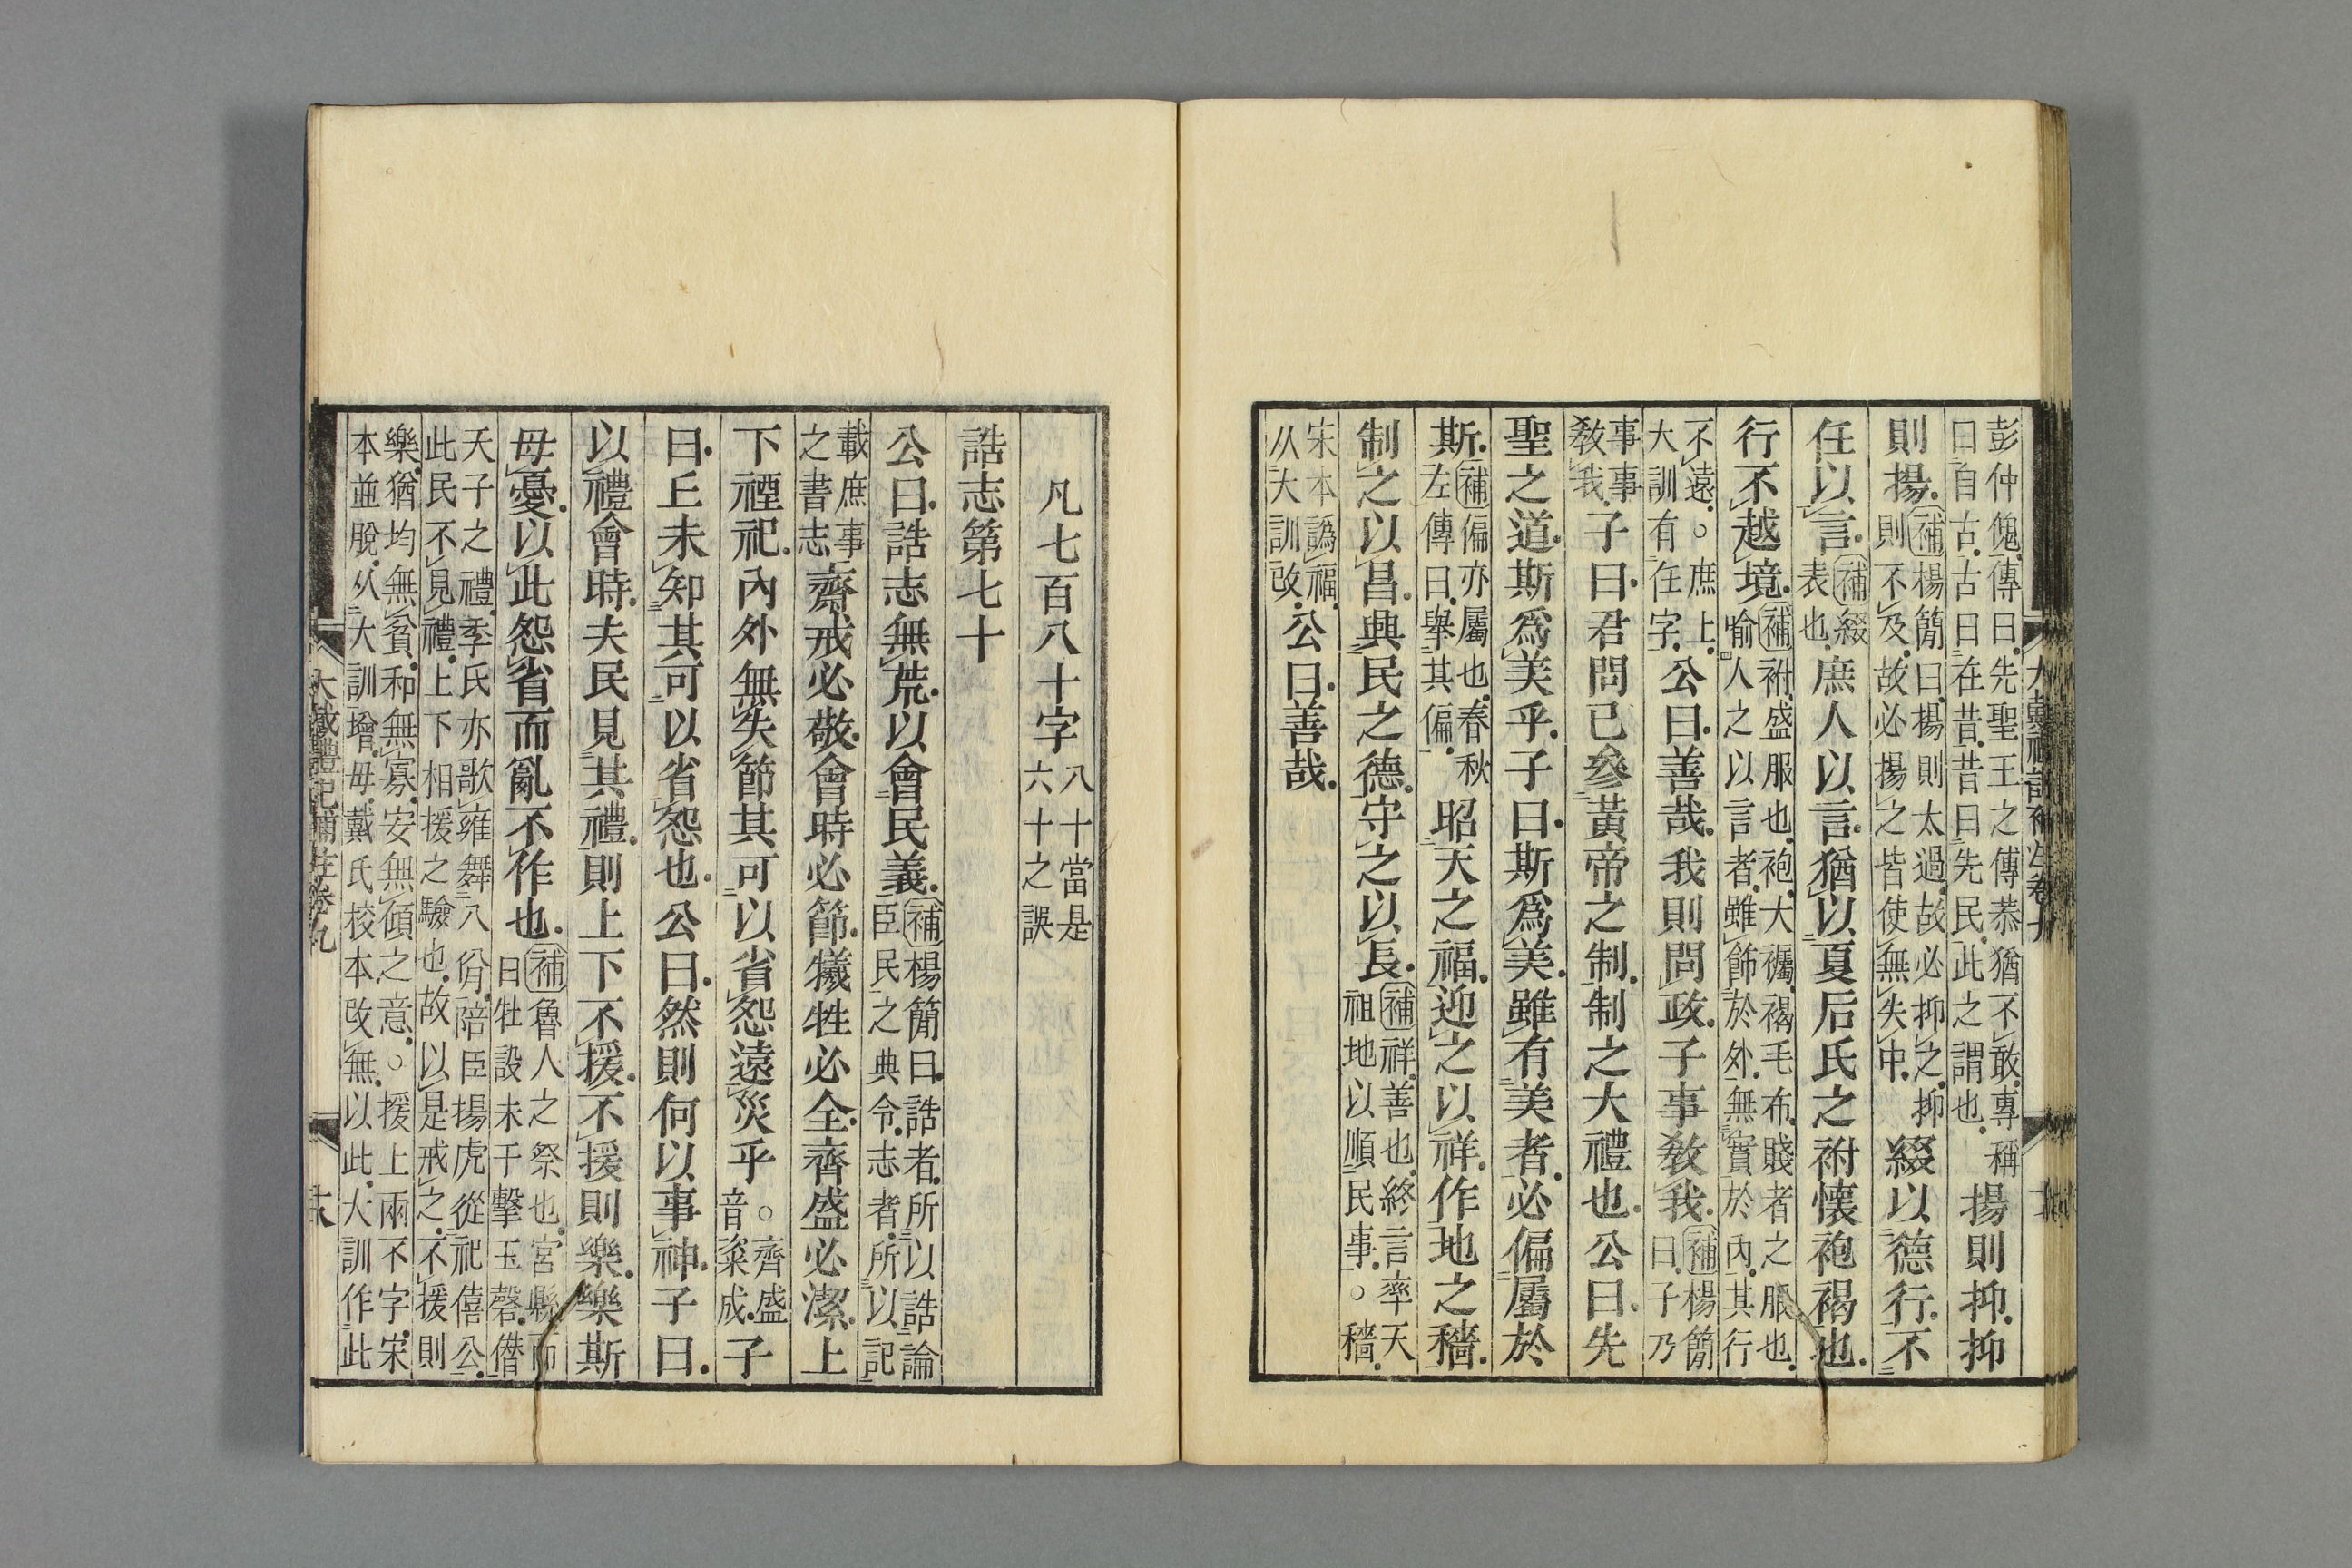 彭仲傀傳曰先聖王之傳恭猶不敢專稱
曰自古古曰在昔昔曰先民此之謂也
揚則抑抑
則揚
補楊簡曰揚則太過故必抑之抑
則不及故必揚之皆使無失中
綴以德行不
任以言
補綴
表也
庶人以言猶以夏后氏之祔懷袍褐也
行不越境
補祔盛服也袍大襺褐毛布賤者之服也
喻人之以言者雖飾於外無實於內其行
不遠○庶上
大訓有在字
公曰善哉我則問政子事教我
補楊簡
曰子乃
事事
教我
子曰君問已參黃帝之制制之大禮也公曰先
聖之道斯爲美乎子曰斯爲美雖有美者必偏屬於
斯
補偏亦屬也春秋
左傳曰舉其偏
昭天之福迎之以祥作地之穡
制之以昌興民之德守之以長
補祥善也終言率天
祖地以順民事○穡
宋本譌福
从大訓改
公曰善哉
凡七百八十字
八十當是
六十之誤
誥志第七十
公曰誥志無荒以會民義
補楊簡曰誥者所以誥論
臣民之典令志者所以記
載庶事
之書志
齋戒必敬會時必節犧牲必全齊盛必潔上
下禋祀內外無失節其可以省怨遠災乎
○齊盛
音粢成
子
曰丘未知其可以省怨也公曰然則何以事神子曰
以禮會時夫民見其禮則上下不援不援則樂樂斯
毋憂以此怨省而亂不作也
補魯人之祭也宮縣而
曰牡設未于擊玉磬僣
天子之禮季氏亦歌雍舞八佾陪臣揚虎從祀僖公
此民不見禮上下相援之驗也故以是戒之不援則
樂猶均無貧和無寡安無傾之意○援上兩不字宋
本並脫从大訓增毋戴氏校本改無以此大訓作此
大戴禮記補注卷九